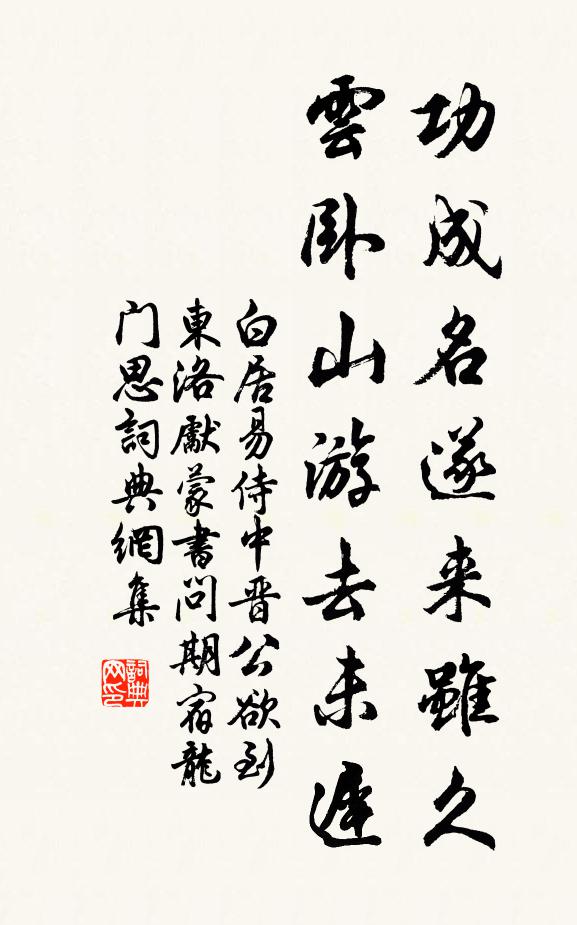 功成名遂来雖久
雲卧山游去未遲
白居易侍中晋公欲到
東洛獻蒙書問期宿龍
门思詞典網集
詞典
网印